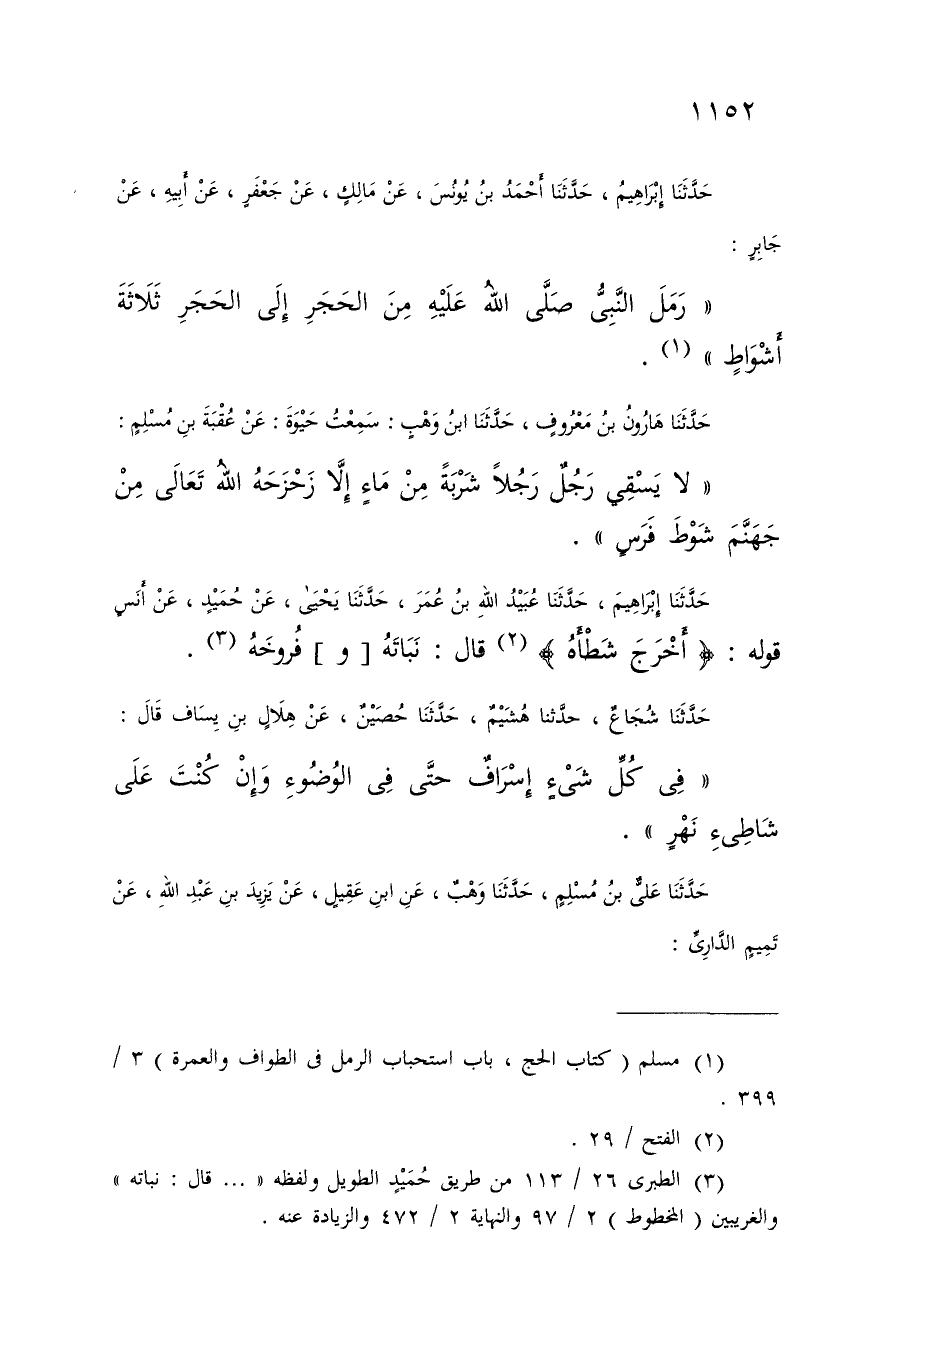 ١١٥٢
حَدَّثَنَا إِبْرَاهِيمُ ، حَدَّثَنَا أَحْمَدُ بنُ يُونُسَ ، عَنْ مَالِكٍ ، عَنْ جَعْفَرٍ ، عَنْ أَبِيهِ ، عَنْ
جَابِرٍ :
« رَمَلَ النَّبِىُّ صَلَّى اللهُ عَلَيْهِ مِنَ الحَجَرِ إِلَى الحَجَرِ ثَلَاثَةَ
أَشْوَاطٍ » (١) .
حَدَّثَنَا هَارُونُ بنُ مَعْرُوفٍ ، حَدَّثَنَا ابنُ وَهْبٍ : سَمِعْتُ حَيْوَةَ : عَنْ عُقْبَةَ بنِ مُسْلِمٍ :
« لا يَسْقِي رَجُلٌ رَجُلاً شَرْبَةً مِنْ مَاءٍ إِلَّا زَحْزَحَهُ اللهُ تَعَالَى مِنْ
جَهَنَّمَ شَوْطَ فَرَسٍ » .
حَدَّثَنَا إِبْرَاهِيمَ ، حَدَّثَنَا عُبَيْدُ اللهِ بنُ عُمَرَ ، حَدَّثَنَا يَحْيَىٰ ، عَنْ حُمَيْدٍ ، عَنْ أَنَسٍ
قوله : ﴿ أَخْرَجَ شَطْأَهُ ﴾ (٢) قال : نَبَاتَهُ [ و ] فُروخَهُ (٣) .
حَدَّثَنَا شُجَاعٌ ، حدَّثنا هُشَيْمٌ ، حَدَّثَنَا حُصَيْنٌ ، عَنْ هِلَالٍ بنِ يِسَاف قَالَ :
« فِى كُلِّ شَىْءٍ إِسْرَافٌ حتَّى فِى الوُضُوءِ وَإِنْ كُنْتَ عَلَى
شَاطِىءِ نَهْرٍ » .
حَدَّثَنَا عَلىُّ بنُ مُسْلِمٍ ، حَدَّثَنَا وَهْبٌ ، عَنِ ابنِ عَقِيلٍ ، عَنْ يَزِيدَ بنِ عَبْدِ اللهِ ، عَنْ
تَمِيمٍ الدَّارِىِّ :
(١) مسلم ( كتاب الحج ، باب استحباب الرمل فى الطواف والعمرة ) ٣ /
٣٩٩ .
(٢) الفتح / ٢٩ .
(٣) الطبرى ٢٦ / ١١٣ من طريق حُمَيْدٍ الطويل ولفظه « ... قال : نباته »
والغريبين ( المخطوط ) ٢ / ٩٧ والنهاية ٢ / ٤٧٢ والزيادة عنه .